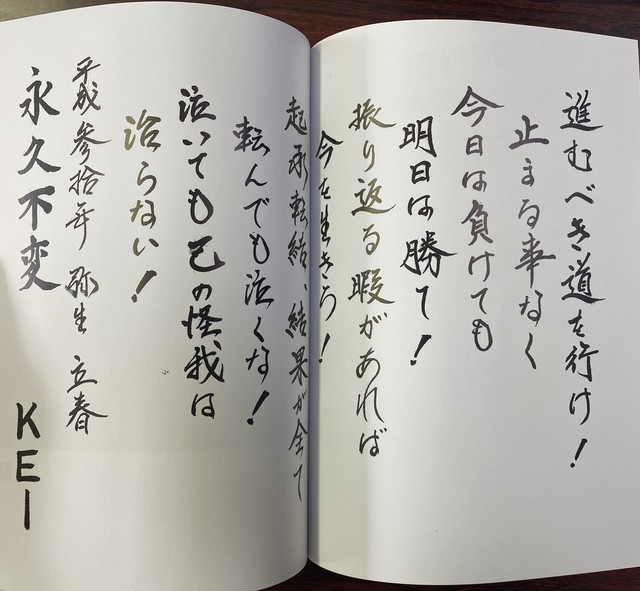 進むべき道を行け！
止まる事なく
今日は負けても
明日は勝て！
振り返る暇があれば
今を生きろ！
起承転結、結果が全て
転んでも泣くな！
泣いても己の怪我は
治らない！
平成参拾年 弥生 立春
永久不変 KEI